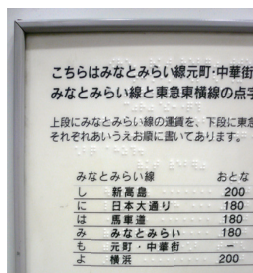 こちらはみなとみらい線元町・中華街
みなとみらい線と東急東横線の点字
上段にみなとみらい線の運賃を、下段に東急
それぞれあいうえお順に書いてあります。
みなとみらい線 おとな
し 新高島 200
に 日本大通り 180
は 馬車道 180
み みなとみらい 180
も 元町・中華街 −
よ 横浜 200